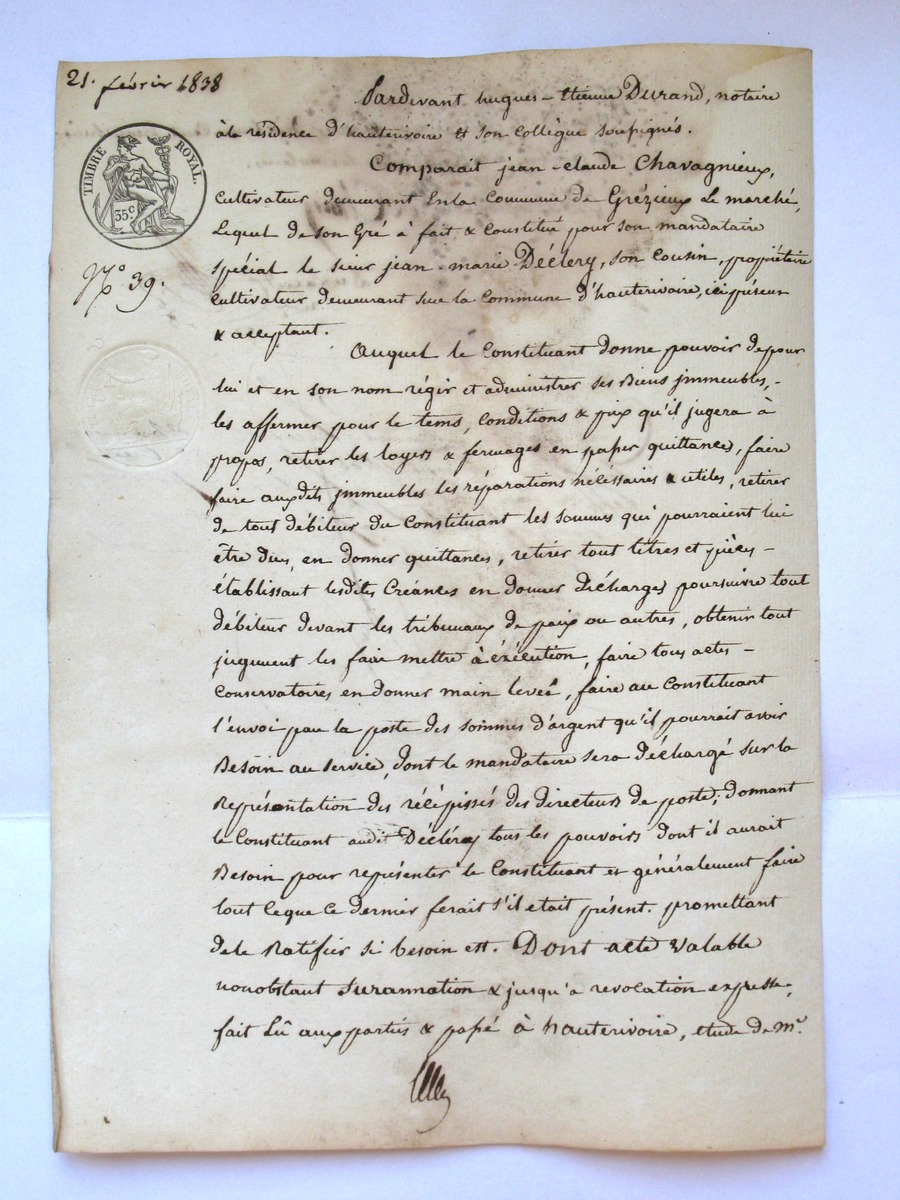 21. février 1838
TIMBRE ROYAL.
35 c
N.º 39.
Pardevant hugues-Etienne Durand, notaire
à la résidence d'hauterivoire et son collègue soussignés.
Comparait jean-claude Chavagnieux,
Cultivateur demeurant En la Commune de Grézieux Le marché,
Lequel de son Gré à fait & Constitué pour son mandataire
spécial le sieur jean-marie Décléry, son Cousin, propriétaire
Cultivateur demeurant sur la Commune d'hauterivoire, ici présent
& acceptant.
Auquel le Constituant donne pouvoir de pour
lui et en son nom régir et administrer ses Biens jmmeubles,-
les affermer pour le tems, Conditions & prix qu'il jugera à
propos, retirer les loyers & fermages en passer quittances, faire
faire auxdits jmmeubles les réparations nécéssaires & utiles, retirer
de tout débiteur du Constituant les sommes qui pourraient lui
être dues, en donner quittances, retirer tout titres et pièces -
établissant lesdites Créances en donner Décharges poursuivre tout
débiteur devant les tribunaux de paix ou autres, obtenir tout
jugement les faire mettre à éxécution, faire tous actes -
Conservatoires en donner main levée, faire au Constituant
l'envoi par la poste des sommes d'argent qu'il pourrait avoir
Besoin au service, dont le mandataire sera Déchargé sur la
Représentation des récépissés des directeurs de poste; donnant
le Constituant audit Décléry tous les pouvoirs dont il aurait
Besoin pour représenter le Constituant et généralement faire
tout ce que Ce dernier ferait s'il etait présent. promettant
de le Ratifier si besoin est. Dont acte valable
nonobstant Surannation & jusqu'à revocation expresse,
fait Lû aux parties & passé à hauterivoire, etude de m.e